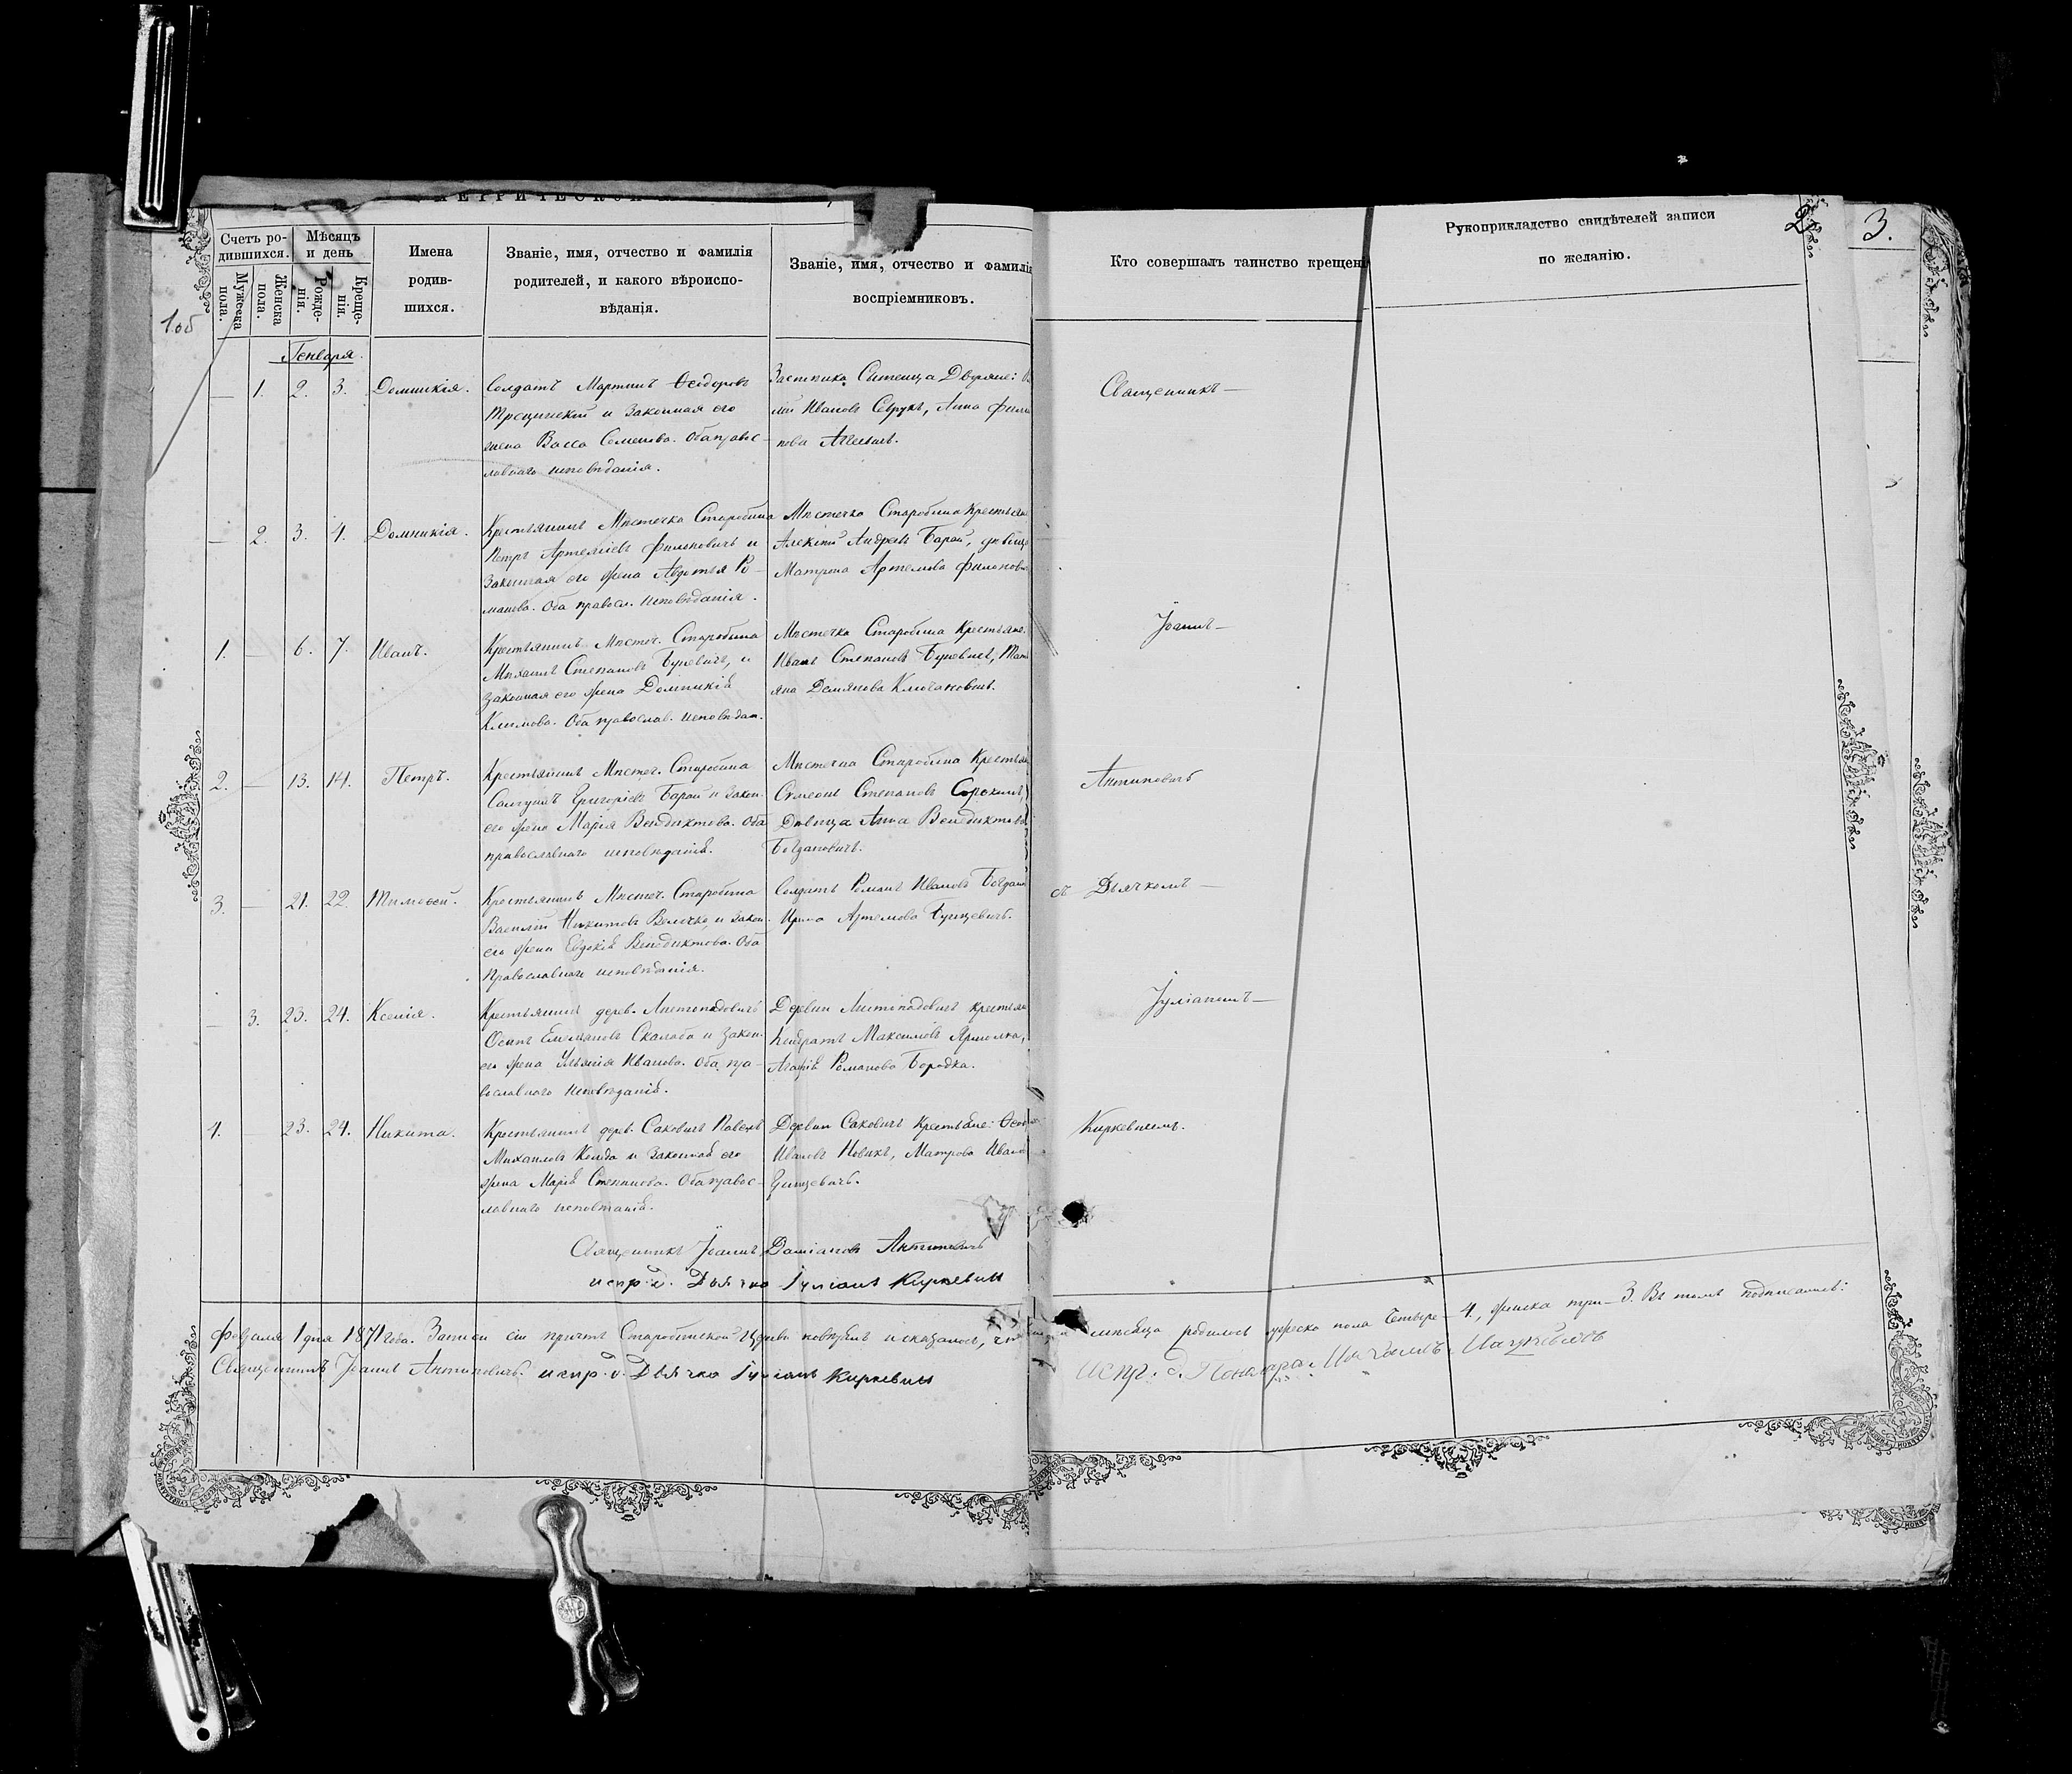 МЕТРИЧЕСКОЙ
Счетъ ро-
дившихся.
Мужеска
пола.
Женска
пола.
Мѣсяцъ
и день
Рожде-
нія.
Креще-
нія.
Имена
родив-
шихся.
Званіе, имя, отчество и фамилія
родителей, и какого вѣроиспо-
вѣданія.
Званіе, имя, отчество и фамилія
воспріемниковъ.
Кто совершалъ таинство крещені
Рукоприкладство свидѣтелей записи
по желанію.
2
3.
1об
Генваря.
— 1. 2. 3. Домникія.
Солдатъ Мартинъ Ѳеодоровъ
и Законная его
жена Васса Семенова. Оба правос-
лавнаго исповѣданія.
Дворяне:
Ивановъ Севрукъ, Анна Фили
пова
Священникъ —
— 2. 3. 4. Домникія.
Крестьянинъ Мѣстечка Старобина
Петръ Артеміевъ Филиповичъ и
Законная его жена Авдотья Ро-
манова. Оба правосл. исповѣданія.
Мѣстечка Старобина Крестьян
Алексѣй Андреевъ Барай, дѣвица
Матрона Артемова Филипов
1. — 6. 7. Иванъ.
Крестьянинъ Мѣстеч. Старобина
Михаилъ Степановъ Буневичъ, и
Законная его жена Домникія
Климова. Оба православ. исповѣдан.
Мѣстечка Старобина Крестьяне.
Иванъ Степановъ Буневичъ, Тать
яна Демянова
Іоаннъ —
2. — 13. 14. Петръ.
Крестьянинъ Мѣстеч. Старобина
Самуилъ Григоріевъ Барай и закон.
его жена Марія Венедиктова. Оба
православнаго исповѣданія.
Мѣстечка Старобина Крестьян
Симеонъ Степановъ Сорокинъ,
Дѣвица Анна Венедиктова
Богдановичъ.
Антиповичъ
3. — 21. 22. Тимоѳей.
Крестьянинъ Мѣстеч. Старобина
Василій Никитовъ Велечко, и закон.
его жена Евдокія Венедиктова. Оба
Православнаго исповѣданія.
Солдатъ Романъ Ивановъ Богдан
Ирина Артемова
съ Дьячкомъ —
— 3. 23. 24. Ксенія.
Крестьянинъ дерев. Листопадовичъ
Осипъ Емельяновъ Скалаба и закон.
его жена Ульянія Иванова. Оба пра-
вославнаго исповѣданія.
Деревни Листопадовичъ крестьян
Кондратъ Максимовъ Ярмолка,
Агафія Романова Бородка.
Іуліаномъ —
4. 23. 24. Никита.
Крестьянинъ дерев. Саковичъ Павелъ
Михаиловъ и Законная его
жена Марія Степанова. Оба правос-
лавнаго исповѣданія.
Деревни Саковичъ Крестьяне:
Ивановъ Новикъ, Матрона Иванов
Киркевичемъ.
Священникъ Іоаннъ Даміановъ Антиповичъ
испр. д. Дьячка Іуліанъ Киркевичъ
Февраля 1 дня 1871 года. Записи сіи причтъ Старобинской Церкви повѣрялъ и оказалось, что
мѣсяца родилось мужеска пола четыре — 4., женска три — 3. Въ томъ подписались:
Священникъ Іоаннъ Антиповичъ. испр. д. Дьячка Іуліанъ Киркевичъ
Испр. д. Пономаря